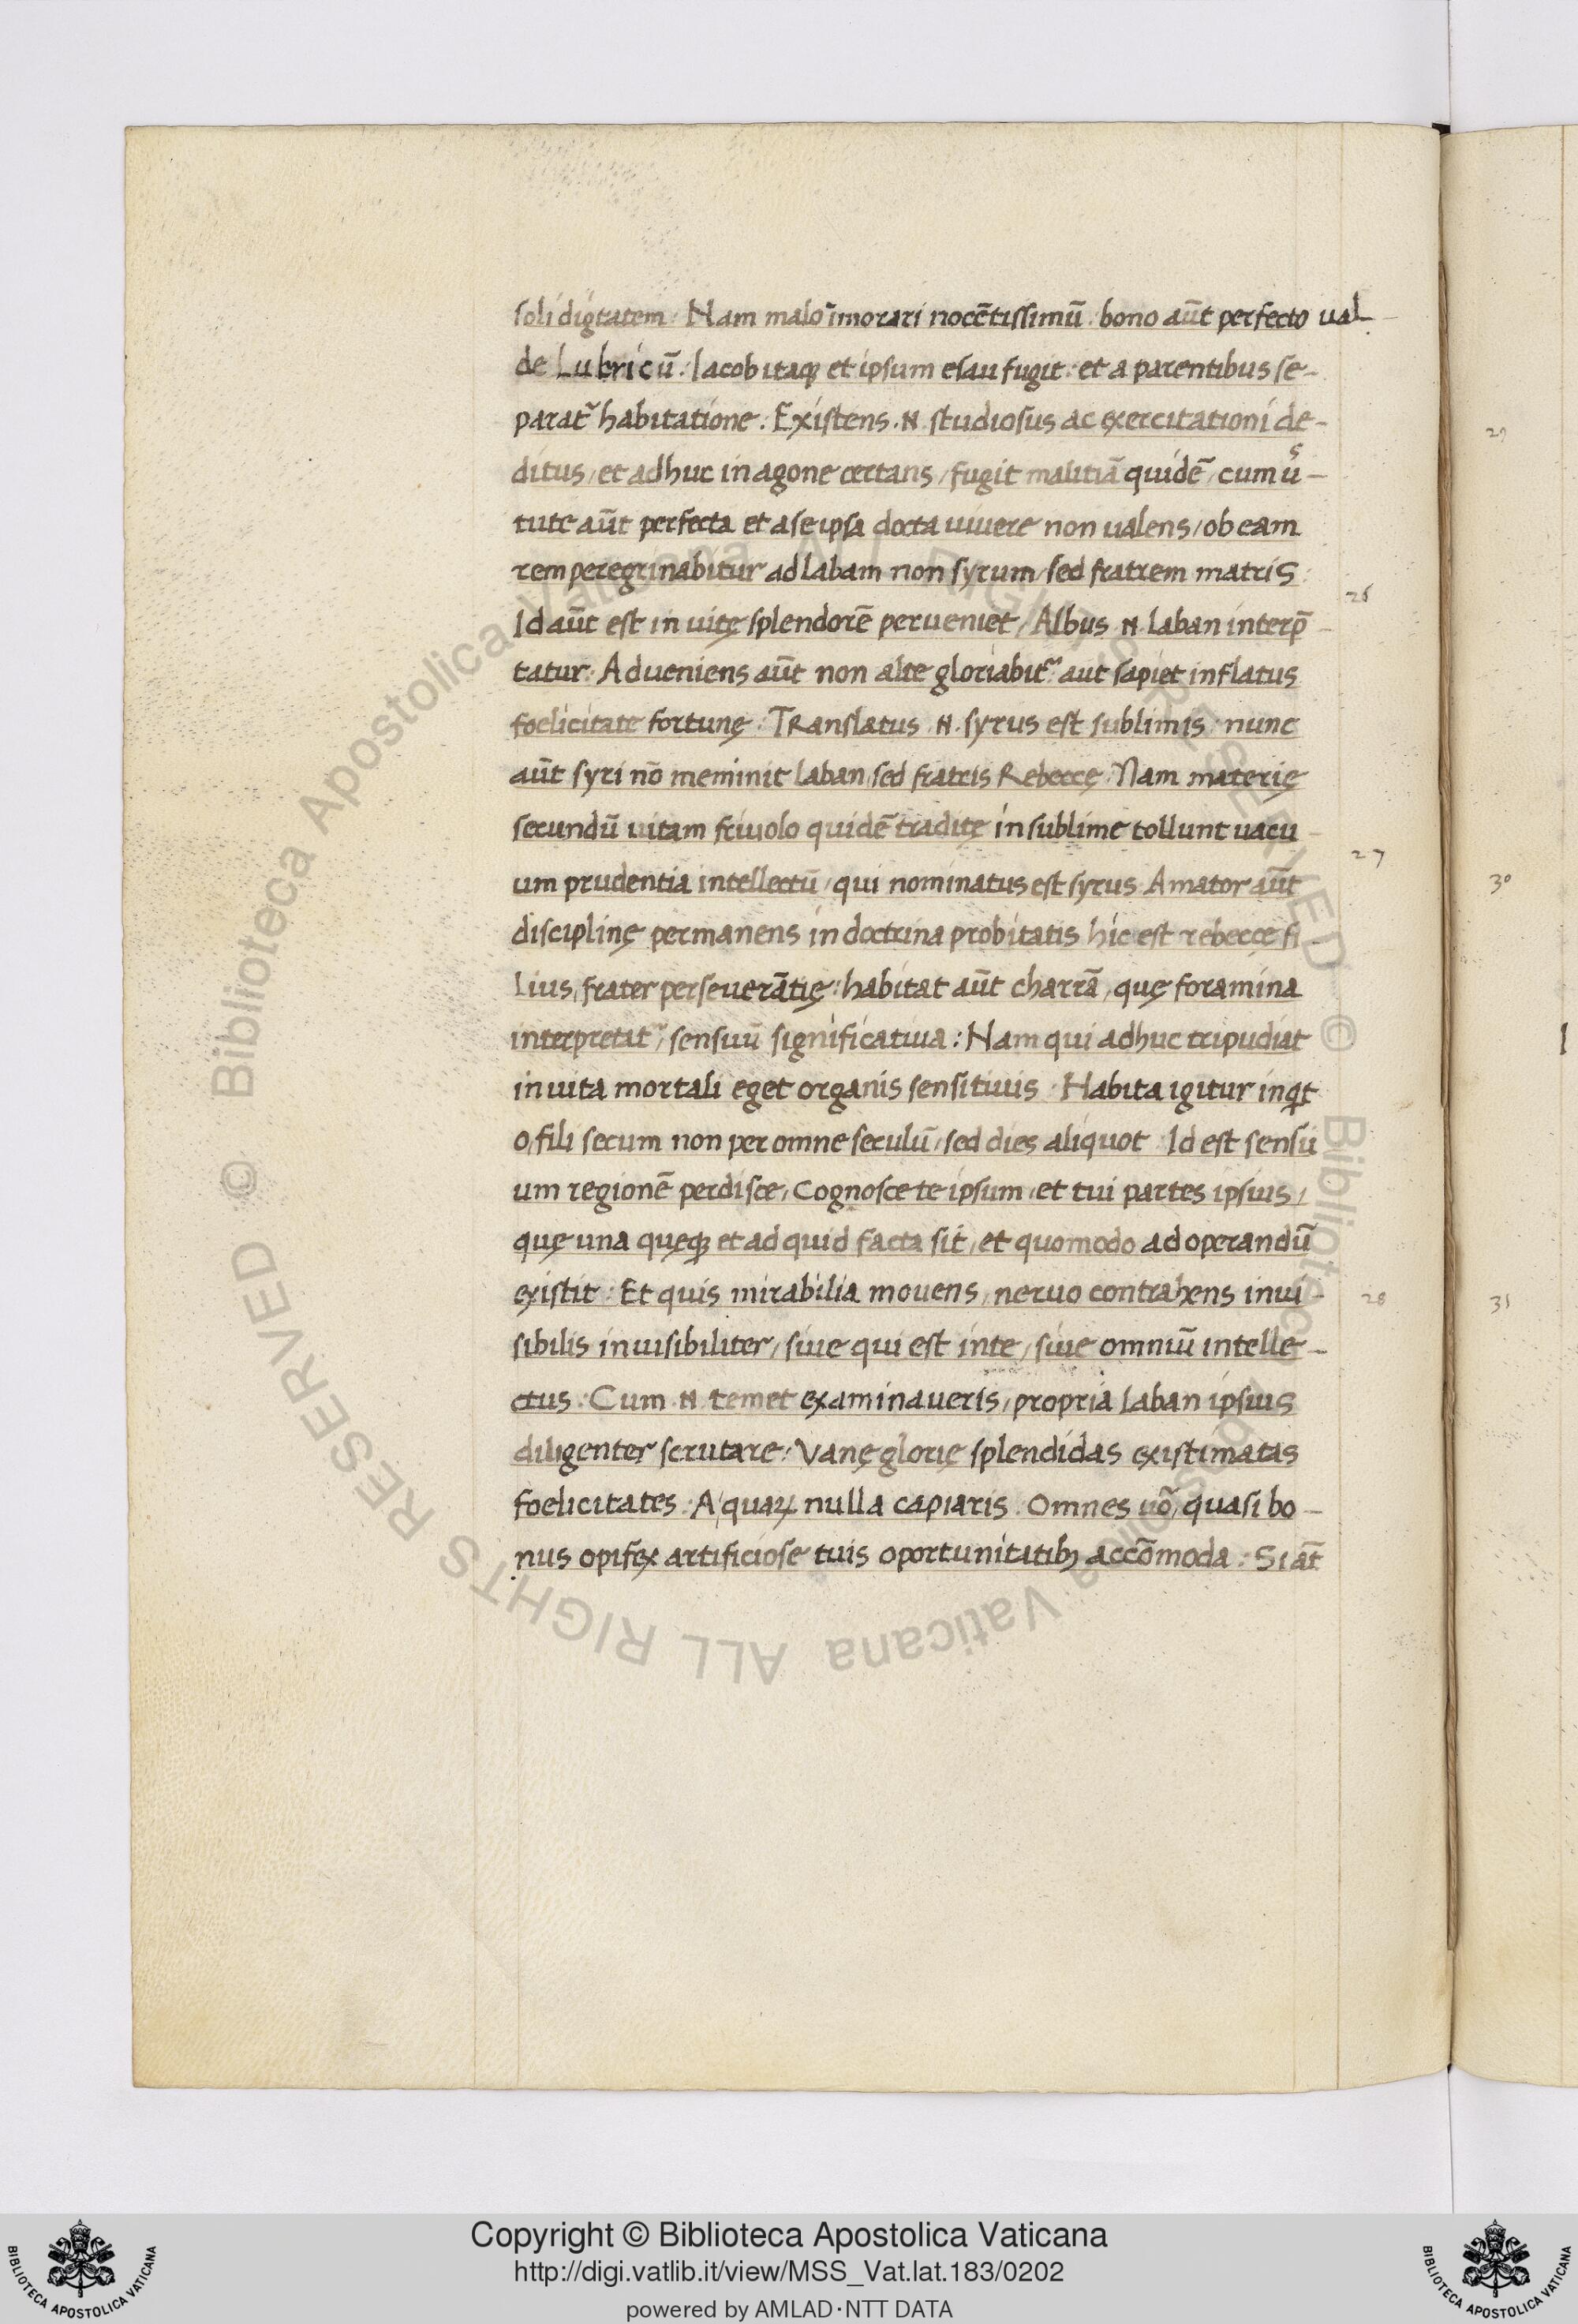 soli digtatem: Nam malo īmorari nocētissimū: bono aūt perfecto val-
de Lubricū: Iacob itaqꝫ et ipsum esau fugit: et a parentibus se-
parat᷑ habitatione: Existens .N. studiosus ac exercitationi de-
ditus, et adhuc in agone certans, fugit malitiā quidē, cum ūs-
tute aūt perfecta et a se ipsa docta vivere non valens, ob eam
rem peregrinabitur ad Labam non syrum, sed fratrem matris:
Id aūt est in vitę splendorē perveniet, Albus .N. Laban interp̄-
tatur: Adveniens aūt non alte gloriabit᷑: aut sapiet inflatus
foelicitate fortunę: Translatus .N. syrus est sublimis: nunc
aūt syri nō meminit Laban, sed fratris Rebeccę: Nam materię
secundū vitam frivolo quidē traditę in sublime tollunt vacu-
um prudentia intellectū, qui nominatus est syrus. Amator aūt
disciplinę permanens in doctrina probitatis hic est rebeccę fi-
lius, frater perseverātię: habitat aūt charrā, quę foramina
interpretat᷑, sensuū significativa: Nam qui adhuc tripudiat
in vita mortali eget organis sensitivis: Habita igitur inqͥt
o, fili secum non per omne seculū, sed dies aliquot: Id est sensu
um regionē perdisce, Cognosce te ipsum, et tui partes ipsius,
quę una quęqꝫ et ad quid facta sit, et quomodo ad operandū
existit: Et quis mirabilia movens, nervo contrahens invi-
sibilis invisibiliter, sive qui est in te, sive omniū intelle-
ctus: Cum .N. temet examinaveris, propria Laban ipsius
diligenter scrutare: Vanę glorię splendidas existimatas
foelicitates: A quaꝝ nulla capiaris. Omnes vō, quasi bo-
nus opifex artificiose tuis oportunitatibꝫ accōmoda: Si āt
26
27
28
29
30
31
Copyright © Biblioteca Apostolica Vaticana
http://digi.vatlib.it/view/MSS_Vat.lat.183/0202
powered by AMLAD·NTT DATA
BIBLIOTECA APOSTOLICA VATICANA
BIBLIOTECA APOSTOLICA VATICANA
© Biblioteca Apostolica Vaticana ALL RIGHTS RESERVED © Biblioteca Apostolica Vaticana ALL RIGHTS RESERVED